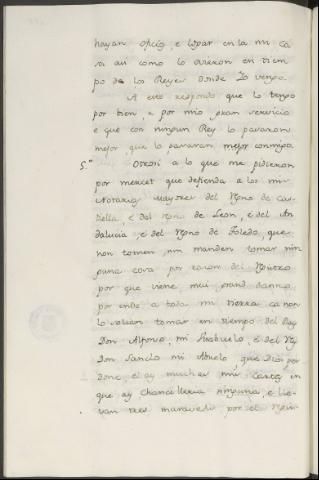 hayan oficio, e logar en la mi ca
sa asi como lo ovieron en tiem
po de los Reyes donde Yo vengo.
A esto respondo que lo tengo
por bien, e por mio gran servicio
e que con ningun Rey lo pasaron
mejor, que lo pasaran mejor conmigo.
5.º Otrosi a lo que me pidieron
por mercet que defienda a los mis
Notarios mayores del Rgno de Cas
tiella, e del Rgno de Leon, e del An
dalucia, e del Rgno de Toledo, que
non tomen nin manden tomar nin
guna cosa por razon del
por que viene mui grand danno
por ende a toda mi tierra ca non
lo solien tomar en tiempo del Rey
Don Alfonso, mi Visabuelo, e del Rey
Don Sancho mi Abuelo, que Dios per
done, e ay muchas mis cartas en
que ay Chancelleria ninguna, e lie
van tres maravedis por el